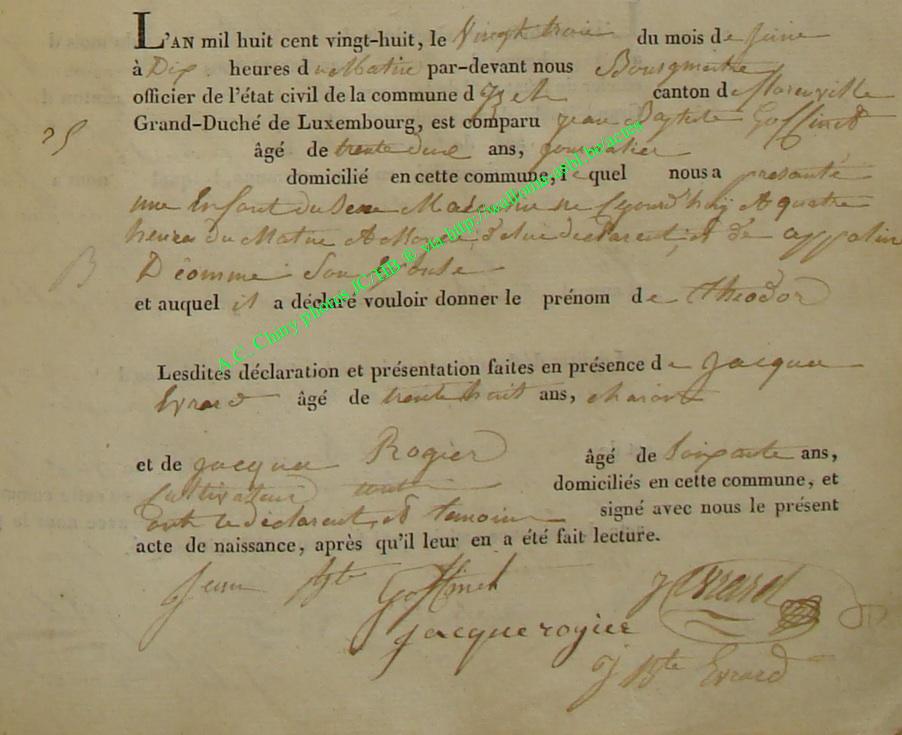 L'AN mil huit cent vingt-huit, le Vingt trois du mois de juin
à Dix heures du Matin par-devant nous Bourgmestre
officier de l'état civil de la commune d'Izel canton de florenville
Grand-Duché de Luxembourg, est comparu jean Baptiste Goffinet
25
âgé de trente deux ans, journalier
domicilié en cette commune, lequel nous a presanté
une Enfant du Sexe né Cejourd'huÿ A quatre
heures du Matin declarent, et de
Son Epouse
B
et auquel il a déclaré vouloir donner le prénom de theodor
A.C. Chiny photos JC/HB ® via http://wallonia-asbl.be/actes
Lesdites déclaration et présentation faites en présence de Jacque
Evrard âgé de trente huit ans, charon
et de jacque Rogier âgé de Soixante ans,
Cultivateur domiciliés en cette commune, et
ont le déclarent, et temoin signé avec nous le présent
acte de naissance, après qu'il leur en a été fait lecture.
Jean Bte Goffinet
J Evrard
jacque rogier
J Bte Evrard